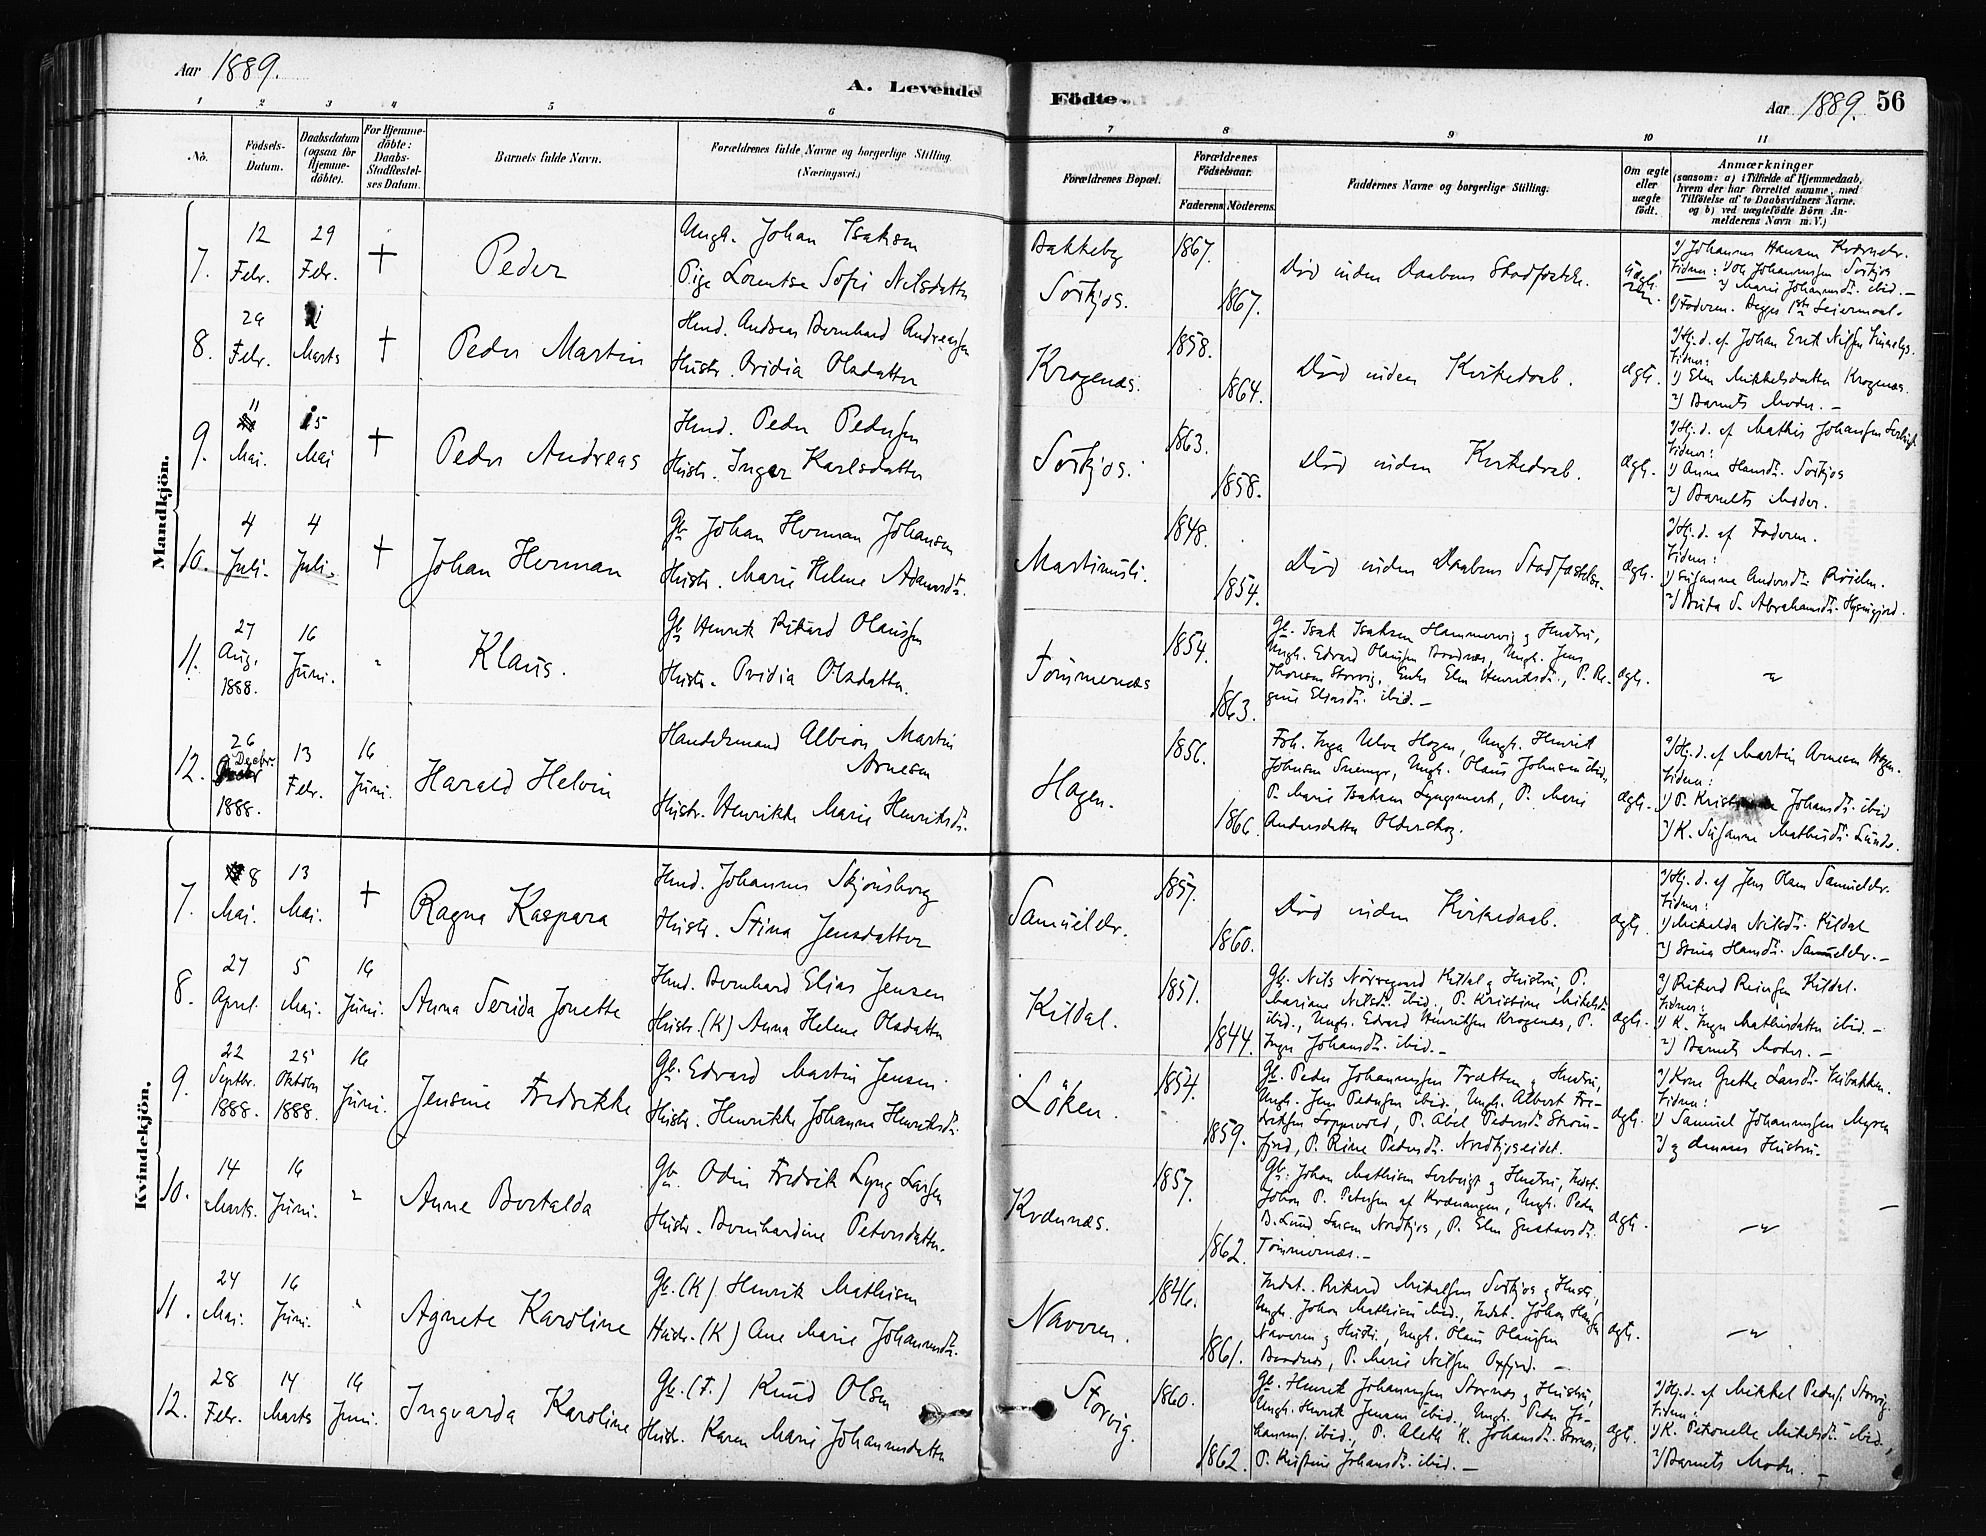 Aar 1889.
A. Levende
Födte.
Aar 1889. 56
1 2 3 4 5 6 7 8 9 10 11
No.
Födsels-
Datum.
Daabsdatum
(ogsaa for
Hjemme-
döbte).
For Hjemme-
döbte:
Daabs-
Stadfæstel-
ses Datum.
Barnets fulde Navn.
Forældrenes fulde Navne og borgerlige Stilling.
(Næringsvei.)
Forældrenes Bopæl.
Forældrenes
Födselsaar.
Faderens Moderens.
Faddernes Navne og borgerlige Stilling.
Om ægte
eller
uægte
födt.
Anmærkninger
(saasom: a) i Tilfælde af Hjemmedaab,
hvem der har forrettet samme, med
Tilföielse af to Daabsvidners Navne.
og b) ved uægtefödte Börn An-
melderens Navn m. V.)
Mandkjön.
7.
12
Febr.
29
Febr.
+
Peder
Ungk. Johan Isaksen
Pige Lorentse Sofie Nilsdatter
Bakkeby
Sørkjos.
1867.
1867.
Død inden Daabens Stadfæstelse.
a) Johannes Hansen
Vidner: 1) Johannessen Sørkjos
2) Marie Johannsdtr. ibid. –
8.
29
Febr.
Marts
+
Peder Martin
Hmd. Andreas Bernhard Andreassen
Hustr. Ovidia Olsdatter
Krogenæs.
1858.
1864.
Død inden Kirkedaab.
ægt.
a) Hj. d. af Johan Erik Nilsen
Vidner:
1) Elen Mikkelsdatter Krogenæs.
2) Barnets Moder. –
9.
11
Mai.
15
Mai
+
Peder Andreas
Hmd. Peder Pedersen
Hustr. Inger Karlsdatter
Sørkjos.
1863.
1858.
Død inden Kirkedaab.
ægt.
a) Hj. d. af Mathis Johansen
Vidner:
1) Anna Hansdtr. Sørkjos
2) Barnets Moder.
10.
4
Juli.
4
Juli.
+
Johan Herman
Gb. Johan Herman Johansen
Hustr. Marie Helene Adamsdtr.
1848.
1854.
Død inden Daabens Stadfæstelse.
ægt.
a) Hj. d. af Faderen.
Vidner:
1) Susanna Andersdtr.
2) Abrahamsdtr.
11.
27
Aug.
1888.
16
Juni.
"
Klaus.
Gb. Henrik Rikard Olaussen
Hustr. Ovidia Olsdatter.
Tømmernæs
1854.
1863.
Gb. Isak Isaksen Hammervig og Hustru,
Ungk. Edvard Olaussen Ungk. Jens
Storvig, Enke Elen Henriksdtr., P. Re-
gine ibid. –
ægt.
"
12.
26
Decbr.
1888.
13
Febr.
16
Juni.
Harald Helvin
Handelsmand Albion Martin
Arnesen
Hustr. Henrikke Marie Henriksdtr.
Hagen.
1856.
1866.
Frk. Inga Ulve Hagen, Ungk. Henrik
Johnsen Ungk. Olaus Johnsen ibid.
P. Marie Isaksen Lyngsmark, P. Marie
Andersdatter Olderskog.
ægt.
a) Hj. d. af Martin Arnesen Hagen.
Vidner:
1) P. Johansdtr. ibid
2) K. Susanne Mathisdtr. Lunde.
Kvindekjön.
7.
8
Mai.
13
Mai.
+
Ragna Kaspara
Hmd. Johannes Skjønsberg
Hustr. Stina Jensdatter
Samuelelv.
1857.
1860.
Død inden Kirkedaab.
ægt.
a) Hj. d. af Jens Olsen Samuelelv.
Vidner:
1) Mikalda Nilsdtr. Kildal
2) Stina Hansdtr. Samuelelv. –
8.
27
April.
5
Mai.
16
Juni.
Anna Serida Jonette
Hmd. Bernhard Elias Jensen
Hustr. (K) Anna Helene Olsdatter
Kildal.
1851.
1844.
Gb. Nils Nørregaard Kildal og Hustru, P.
Mariane Nilsdtr. ibid., P. Kristine Mikelsdtr.
ibid., Ungk. Edvard Henriksen Krogenæs, P.
Inger Johansdtr. ibid. –
ægt.
a) Rikard Kildal.
Vidner:
1) K. Inger Mathisdatter ibid. –
2) Barnets Moder. –
9.
22
Septbr.
1888.
25
Oktober
1888.
16
Juni.
Jensine Fredrikke
Gb. Edvard Martin Jensen.
Hustr. Henrikke Johanna Henriksdtr.
Løken.
1854.
1859.
Gb. Peder Johannessen Trætten og Hustru,
Ungk. Jens Pedersen ibid. Ungk. Albert Fre-
driksen P. Abel Pedersdtr. Straum-
fjord, P. Rine Pedersdtr. Nordkjoseidet.
ægt.
a) Kone Grethe Larsdtr.
Vidner:
1) Samuel Johannessen Myren
2) og dennes Hustru.
10.
14
Marts.
16
Juni.
"
Anne Bertalda
Gb. Odin Fredrik Lyng Larsen
Hustr. Bernhardine Petersdatter.
Kvænnæs.
1857.
1862.
Gb. Johan Mathisen og Hustru, Indst.
Johan P. Petersen af Kvænangen, Ungk. Peder
B. Lund Larsen Nordkjos, P. Elen Gustavsdtr.
Tømmernæs. –
ægt.
"
11.
24
Mai.
16
Juni.
"
Agnete Karoline
Gb. (K). Henrik Mathisen
Hustr. (K) Ane Marie Johannesdtr.
Navren.
1846.
1861.
Indst. Rikard Mikalsen Sørkjos og Hustr.,
Ungk. Johan Mathisen ibid., Indst. Johan Hansen
Navren og Hustr., Ungk. Olaus Olaussen
P. Marie Nilsen Oxfjord. –
ægt.
"
12.
28
Febr.
14
Marts
16
Juni.
Ingvarda Karoline
Gb. (F.) Knud Olsen
Hustr. Karen Marie Johannesdatter
Storvig.
1860.
1862.
Gb. Henrik Johannessen Stornæs og Hustru,
Ungk. Henrik Jensen ibid., Ungk. Peder Jo-
hannes. ibid., P. Aleth K. Johansdtr. Stornæs,
P. Kristine Johansdtr. ibid. –
ægt.
a) Hj. d. af Mikkel Peders. Storvig.
Vidner:
1) K. Petronelle Mikelsdtr. ibid.,
2) Barnets Moder. –